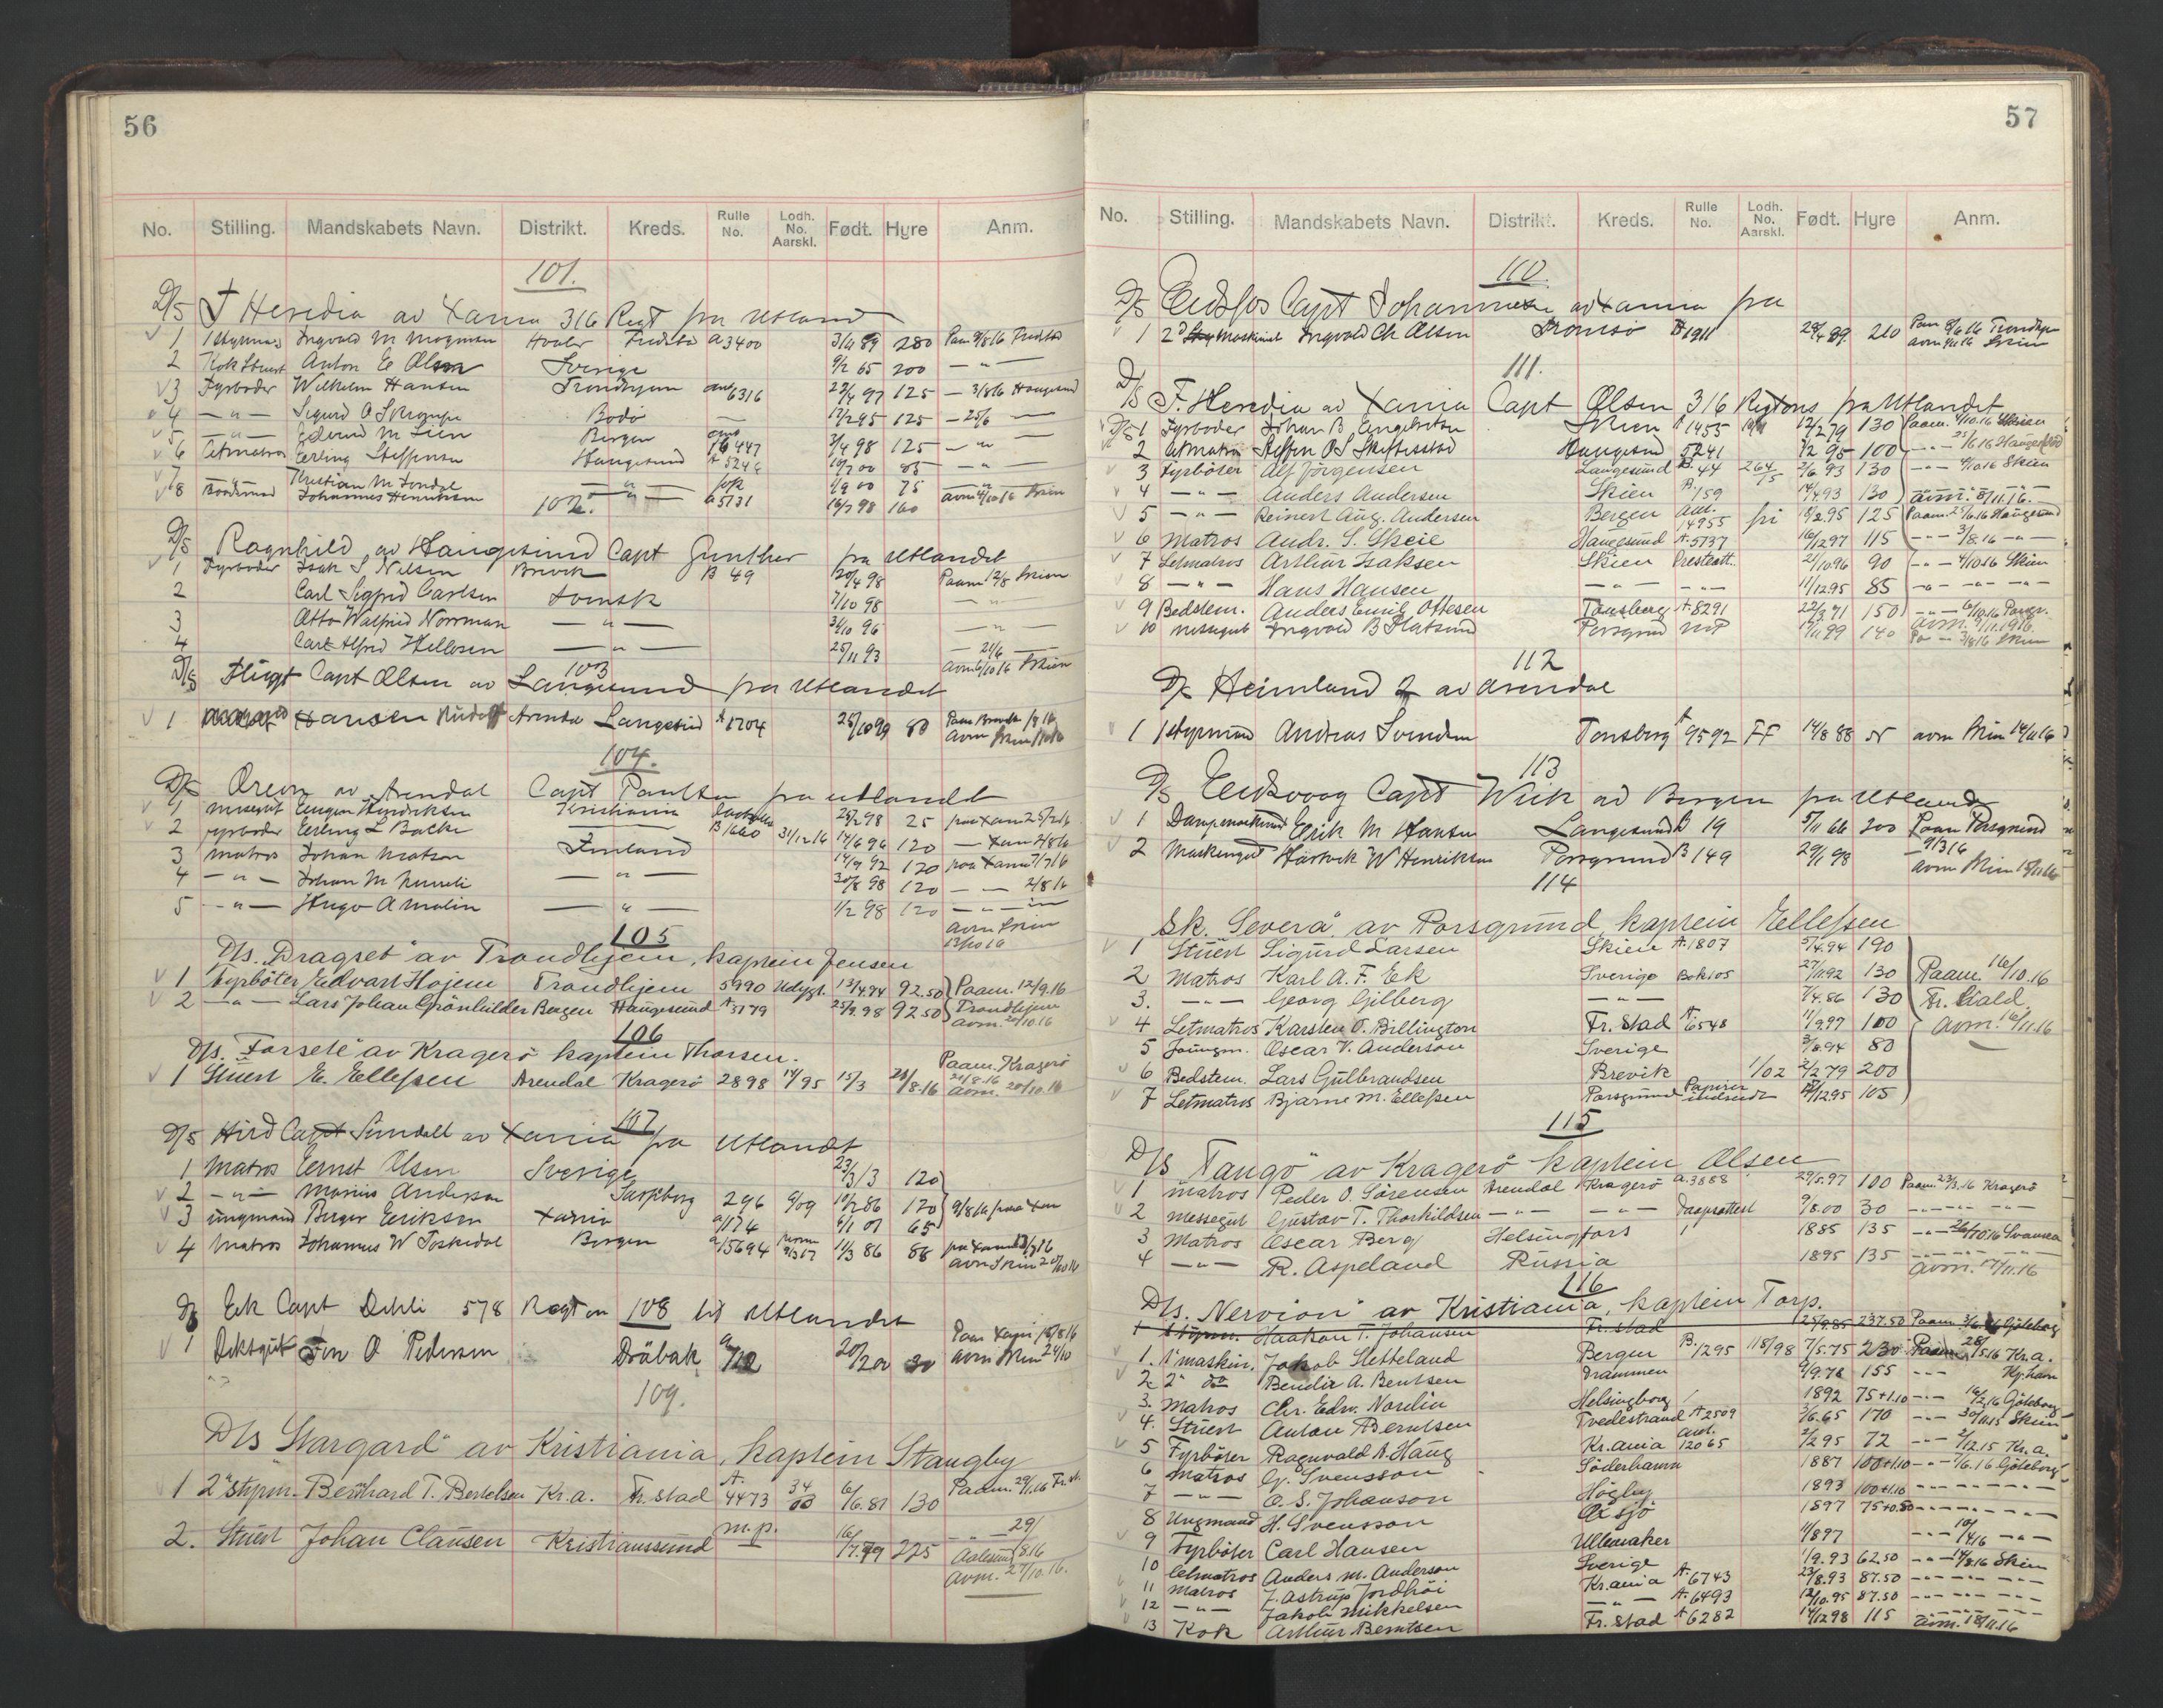 56
No. Stilling. Mandskabets Navn. Distrikt. Kreds. Rulle No. Lodh. No. Aarskl. Født. Hyre Anm.
101.
D/S F Heredia av Xania 316 Regt fra Utland
1 1 styrmand Ingvald M Mogensen Hvaler Fredstad A 3400 3/11 89 280 Paam 9/8 16 Fredstad
2 Kok Stuert Anton E Olsen Sverige 9/2 65 200 — " —
3 Fyrböder Wilhelm Hansen Trondhjem 6316 29/4 97 125 — 3/8 16 Haugesund
4 — " — Sigurd O Bodö 13/2 95 125 — 25/6 —
5 — " — Edvind M Lien Bergen 447 3/4 98 125 — " —
6 Letmatros Erling Steffensen Haugesund A 5246 10/7 00 85 — " —
7 — " — Kristian M — " — 1/9 00 75 — " —
8 Baadsmand Johannes Henriksen A 5731 16/7 98 160 avm 4/10 16 Skien
102.
D/S Ragnhild av Haugesund Capt Gunther fra Utlandet
1 Fyrböder Isak S Nilsen Brevik B 49 20/4 98 Paam 12/8 Skien
2 Carl Sigfrid Carlsen Svensk 7/10 98 — " —
3 Otto Walfrid Norrman — " — 3/10 96 — " —
4 Carl Alfred Hellesen — " — 25/11 93 — 21/6 —
avm 6/10 16 Skien
103
D/S Flügt Capt Olsen av Langesund fra Utlandet
1 Hansen Rudolf Arendal Langesund A 1704 25/10 99 80 Paam Brevik
avm Skien
104.
D/S Orion av Arendal Capt Paulsen fra utlandet
1 messegut Eugen Hendriksen Kristiania 25/2 98 25 paa Xania 25/7 16
2 fyrböder Erling L Bache — B 1660 31/12 16 14/6 96 120 — Xania 2/8 16
3 matros Johan Matson Finland 14/9 92 120 paa Xania 7/7 16
4 — " — Johan M — " — 30/8 98 120 — — 2/8 16
5 — " — Hugo A Malin — " — 1/2 98 120 — " —
avm Skien
12/10 16
105
D/s. "Dragset" av Trondhjem, kaptein Jensen
1 Fyrböter Edvart Hojem Trondhjem 5990 Udygt. 13/4.94 92.50 Paam. 12/9.16
2 — " — Lars Johan Grönhilder Bergen Haugesund A 3179 25/9.98 92.50 Trondhjem
avm. 20/10.16
106
D/s. "Forsete" av Kragerö kaptein Thorsen.
1 Stuert E. Ellefsen Arendal Kragerö 2898 14/95 15/3 21/8.16 Paam. Kragerö
21/8.16
avm. 20/10.16
107
D/S Hird Capt Sundell av Xania fra Utlandet
1 Matros Ernst Olsen Sverige 23/3/3 120
2 — " — Marius Andersen Sarpsborg 296 9/09 10/2 86 120 9/8 16 paa Xan
3 ungmand Birger Eriksen Xania A/174 6/1 01 65
4 Matros Johannes W Toskedal Bergen A/5694 11/3 86 88 paa Xania 13/7 16
avm Skien 20/10 16
108
D/S Eek Capt Dehli 578 Regt on til Utlandet
1 Deksgut Finn O Pedersen Dröbak A/712 20/2 00 30 Paa Xania 15/8 16
avm Skien 24/10
109.
D/s "Stargard" av Kristiania, kaptein Stangby
1 2' styrm. Bernhard T. Bertelsen Kr.a. Fr.stad A. 4473 34/03 6/6.81 130 Paam. 29/1.16 Fr.st.
2. Stuert Johan Clausen Kristianssund m.p. 16/7.79 225 — " — 29/8.16
Aalesund
avm. 27/10.16.
57
No. Stilling. Mandskabets Navn. Distrikt. Kreds. Rulle No. Lodh. No. Aarskl. Født. Hyre Anm.
110
D/S Eidsfos Capt Johannesen av Xania fra
1 2' Maskinist Ingvald Chr Olsen Tromsö A 1911 28/4 89 210 Paa 8/6 16 Trondhjem
avm 4/11 16 Skien
111.
D/S F. Heredia av Xania Capt Olsen 316 Regtons fra Utlandet
1 Fyrböder Johan B Engebretsen Skien A 1455 12/2 79 130 Paam. 4/10.16 Skien
2 Letmatros Steffen O S Skeftesstad Haugesund 5241 3/2 95 100 — " — 25/6 16 Haugesund
3 Fyrböter Alf Jörgensen Langesund B. 44 264/5 2/6 93 130 — " — 4/10 16 Skien
4 — " — Anders Andersen Skien B. 159 14/4.93 130 avm. 8/11.16.
5 — " — Reinert Aug. Andersen Bergen Ant. 14955 fri 1/2.95 125 Paam. 25/6.16 Haugesund
6 Matros Andr. S. Skeie Haugesund A. 5737 16/12 97 115 — " — 3/8.16 — " —
7 Letmatros Arthur Isaksen Skien Presteatt. 21/10.96 90 — " — 4/10 16 Skien
8 — " — Hans Hansen — " — — " — 11/12.95 85 — " — — " —
9 Bedstem. Anders Emil Ottesen Tønsberg A. 8291 22/3.71 150 — " — 6/10.16 Porsgr.
avm. 9/11.1916.
10 messegut Ingvald B Flatsund Porsgrund 19/11 99 140 Pa — 3/8/16 Skien
112
D/S Heimland 2 av Arendal
1 1 styrmand Andreas Svendsen Tønsberg A 9592 FF 14/8 88 avm Skien 14/11 16
113
D/S Eeksvaag Capt Wiik av Bergen fra Utlandet
1 Dampmaskinist Erik M Hansen Langesund B 19 5/11 66 200 Paam Porsgrund
2 Maskingut Hartvik W Henriksen Porsgrund B 149 29/1 98 — 9/3 16
avm Skien 15/11 16
114
Sk. "Severa" av Porsgrund, kaptein Ellefsen
1 Stuert Sigurd Larsen Skien A. 1807 5/4.94 190
2 Matros Karl A. F. Ek Sverige Bok 105 27/11.92 130 Paam. 16/10.16
3. — " — Georg Gilberg — " — 7/4.86 130 Fr.hald
4 Letmatros Karsten O. Billington Fr.stad A 6548 11/9.97 100 avm. 16/11.16
5 Joungm. Oscar V. Anderson Sverige 3/8.94 80
6 Bedstem. Lars Gulbrandsen Brevik 1/02 2/2 79 200
7 Letmatros Bjarne M. Ellefsen Porsgrund Papirer indsendt 18/12 95 105
115
D/s "Tango" av Kragerö kaptein Olsen
1 matros Peder O. Sörensen Arendal Kragerö A. 3888 29/5.97 100 Paam. 23/3.16 Kragerö
2 messegut Gustav T. Thorkildsen — " — — " — Daapsattest 9/8.00 30 — " — — " —
3 Matros Oscar Berg Helsingfors 1885 135 — " — 26/10.16 Swansea
4 — " — R. Aspeland Russia 1895 135 — " —
avm. 17/11.16
116
D/s. "Nervion" av Kristiania, kaptein Torp.
1 1 styrm. Haakon T. Johansen Fr.stad 25/8 85 237.50 Paam. 3/6.16 Göteborg
1. 1' maskin. Jakob Sletteland Bergen B. 1295 118/98 7/5.75 230 Paam. 28/5.16 Kr.a.
2. 2' do Bendix A. Bentsen Drammen 9/9.78 155 — " — Kj.havn
3. Matros Chr. Edv. Nordin Helsingborg 1892 75+1.10 — " — 16/2.16 Göteborg
4. Stuert Anton A Berntsen Tvedestrand A 2509 3/6.65 170 — " — 30/11.15 Skien
5 Fyrböter Ragnvald A. Haug Kr.ania Ant. 12065 2/2 95 72 — " — 2/12.15 Kr.a.
6 Matros G. Svensson Söderhamn 1887 100+1.10 — " — 1/6.16 Göteborg
7 — " — O. S. Johanson Högby 1893 100+1.10 — " — — " —
8 Ungmand H. Svensson Oxsjö 1897 75+0.80 — " — — " —
9 Fyrböter Carl Hansen Ullensaker 1/8 97 — " — 10/4.16 — " —
10 Letmatros Anders M. Anderson Sverige 1/9.93 62.50 — " — 14/8.16 Skien
11 Matros J. Astrup Jordhöi Kr.ania A. 6743 23/8.93 87.50 — " — — " —
12 — " — Jakob Mikkelsen — " — A. 6493 12/10.95 87.50 — " — — " —
13 Kok Arthur Berntsen Fr.stad A 6282 14/12 98 115 — " —
avm. 18/11.16